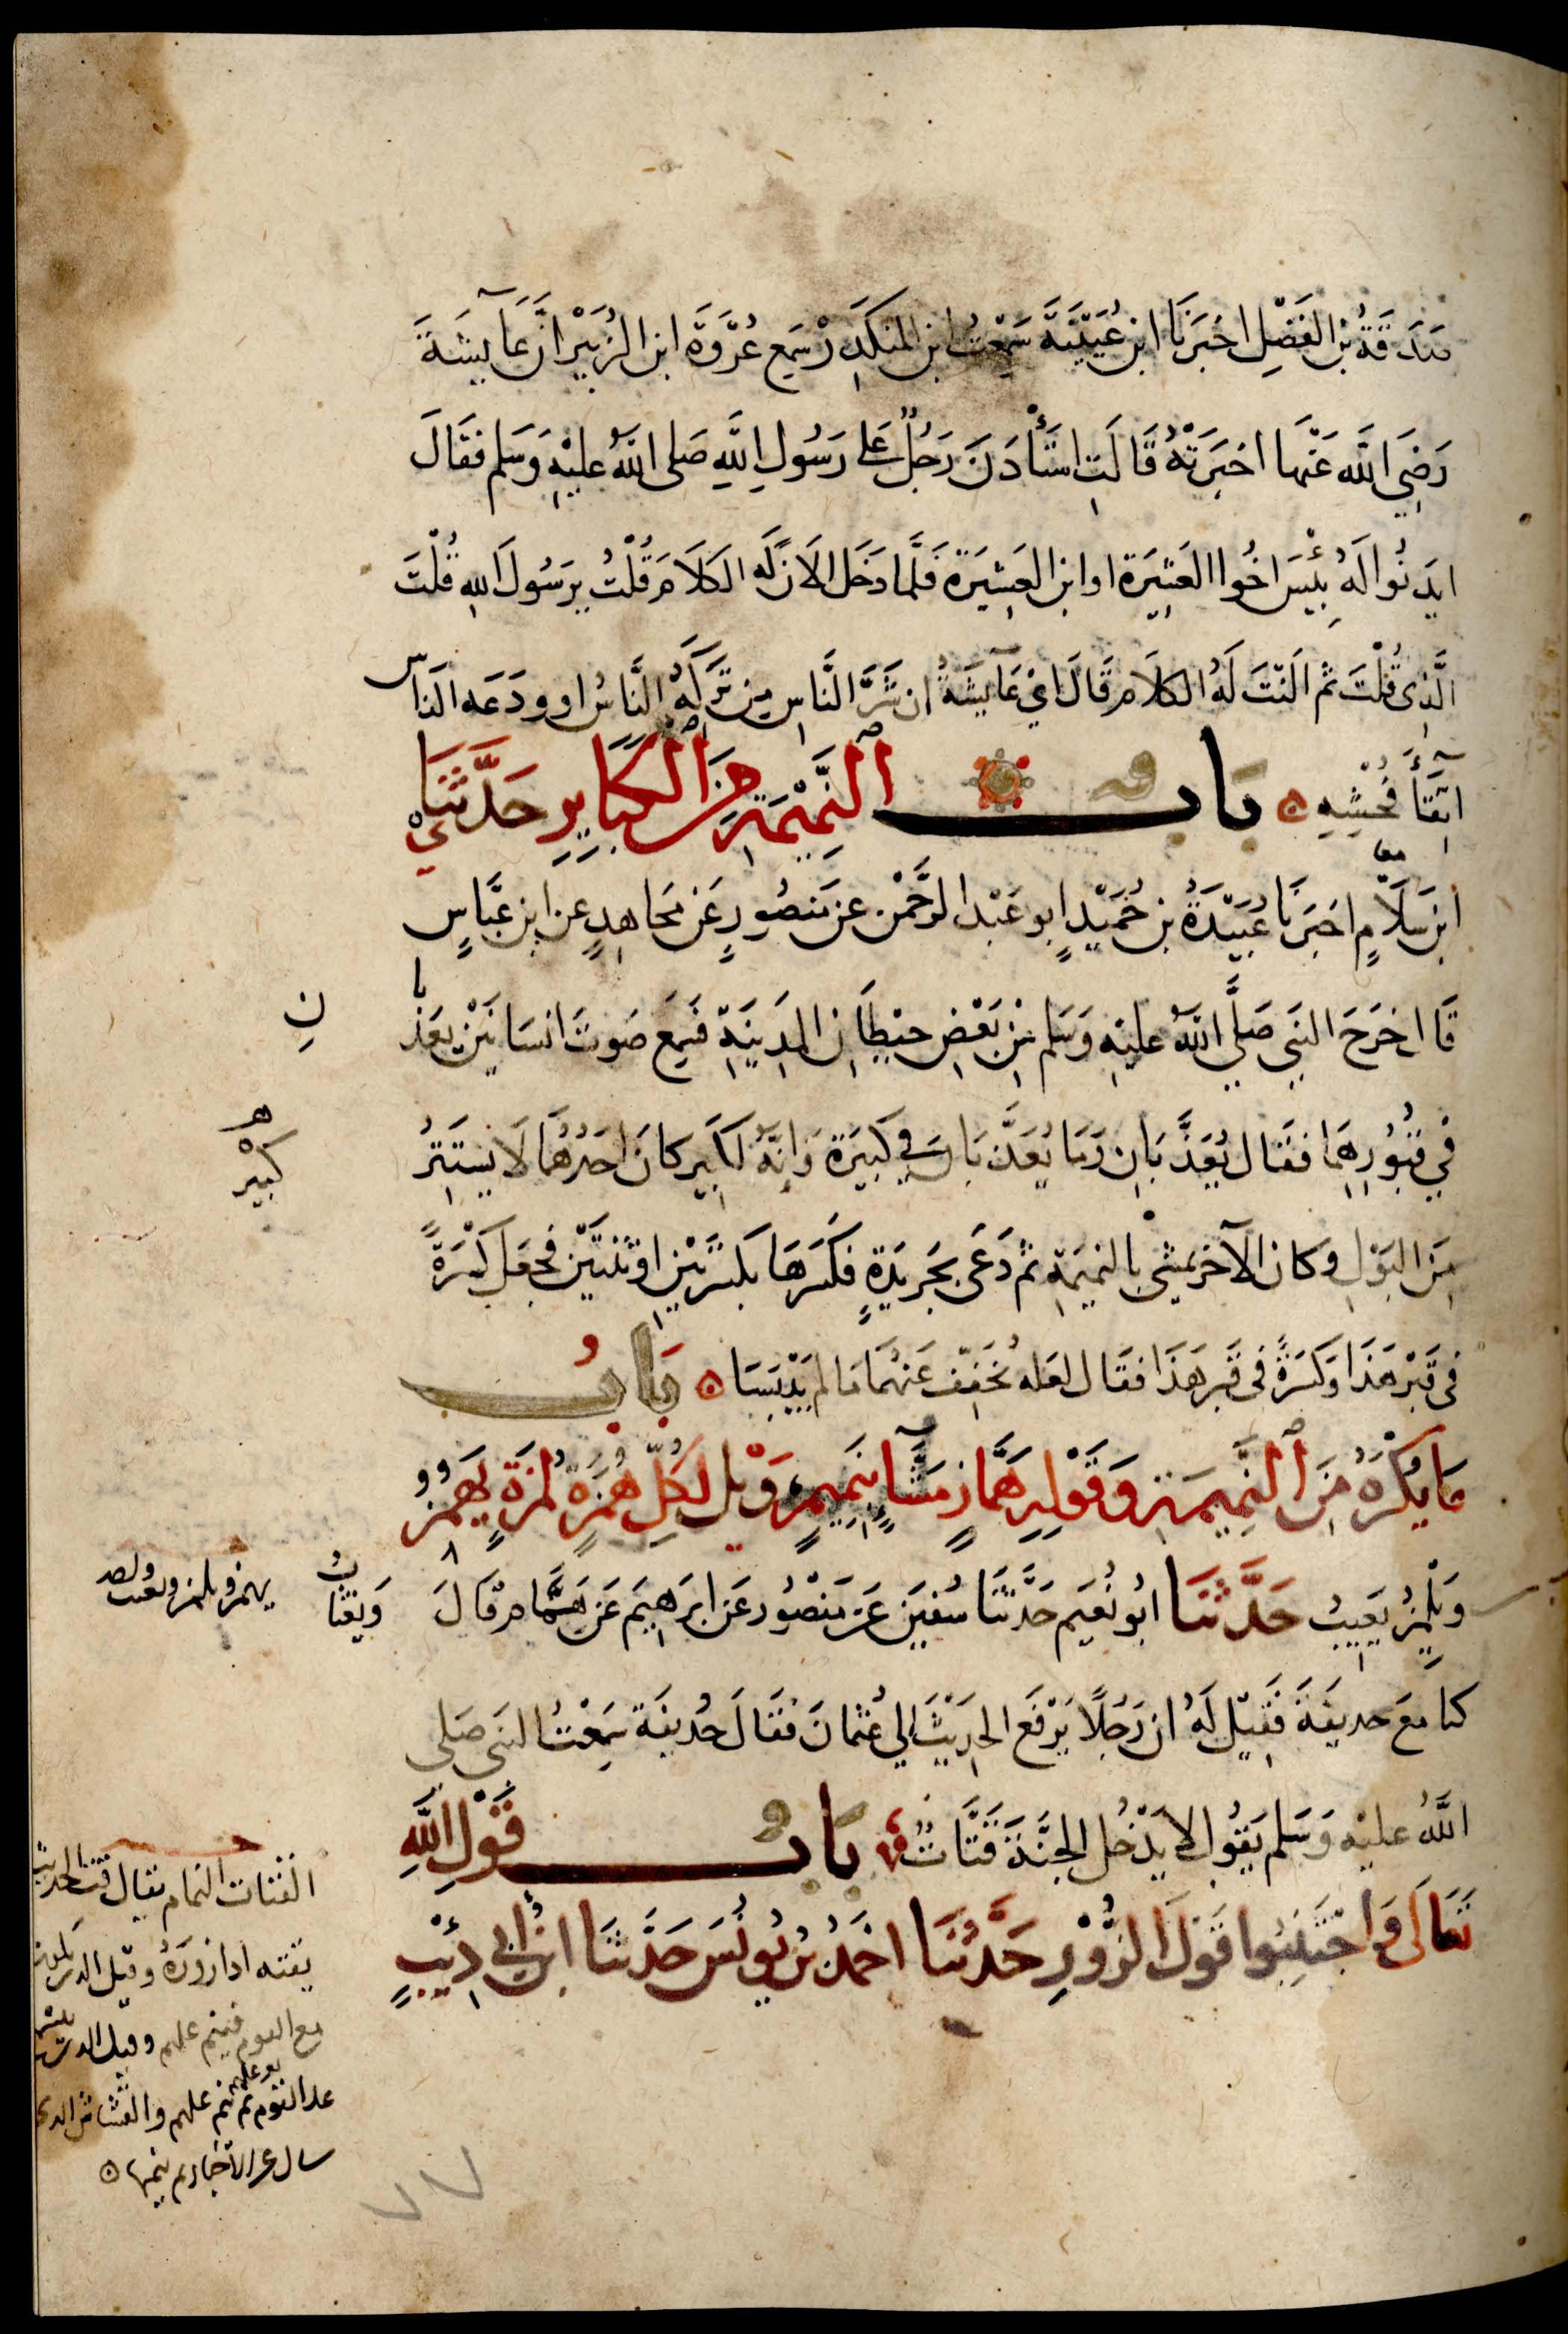 صَدَقَةُ بْنُ الفَضْلِ اخْبَرَنَا ابن عُيَيْنَةَ سَمِعْتُ ابن المنكَدِر سَمِع عُرْوَةَ ابن الزُبَيْر انَّ عَآيِشَةَ
رَضِيَ اللَّه عَنْهَا اخبَرَتْهُ قَالَتِ اسْتَأْذَنَ رَجُلٌ عَلَى رَسُولِ اللَّهِ صَلى اللَّهُ عليْهِ وَسَلم فقَالَ
ايذَنُوا لَهُ بِئْسَ اخُوا العَشِيَرة اوابن العَشِيَرة فَلَمَّا دَخَل الَانَ لَه الكَلَامَ قُلْتُ يرَسُولَ اللهِ قُلْتَ
الَّذِى قُلْتَ ثم الَنْتَ لَهُ الكلَامَ قَالَ ايْ عَآيِشَةُ ان شَرَّ النَّاسِ مِن تَرَكَهُ النَّاسُ او ودَعَه النَاس
اتِّقَآءَ فُحْشِهِ بَابٌ النَّمِيْمَةِ مِنَ الكَبَايِرِ حَدَّثَنَا
معا
ابن سَلَامٍ اخبَرَنَا عُبَيْدَةُ بن حُمَيْدٍ ابو عَبْد الرَّحْمن عن مَنصُورٍ عَن مُجَاهِدٍ عن ابن عَبَّاسٍ
قَا ل خرَجَ النبِي صَلَّي اللَّهُ عليْهِ وَسَلم مِن بَعْضِ حيْطَانِ المدِينَةِ فسَمِعَ صَوتَ انسَانَيْن يعَذَّبا
نِ
فِي قُبُورِهِمَا فقَال يُعَذَّبَانِ وَمَا يُعَذَّبَانِ فِي كَبيرَة وَانَّهُ لَكبِير كانَ احَدُهُمَا لَا يَستَتِرُ
كبيره
مِنَ البَوْلِ وكان الآخر يمشى بالنميمَةِ ثم دَعَى بجَرِيدَةٍ فكَسَرَهَا بكِسْرَتَيْنِ او ثنتَيْن فجعَل كِسْرَةً
فى قَبْر هَذَا وَكسْرَةً فى قَبر هَذَا فقَال لعَله يُخَفَّف عَنهُمَا مَا لم يَيْبَسَا بَابُ
مَا يُكْرَهُ مِنَ النَّمِيمَةِ وَقَوْلِهِ هَمَّازٍ مَشَّآءٍ بِنَمِيمٍ وَيْل لكِلِّ هُمَزَةٍ لُمَزَةٍ يَهْمِزُ
وَيَلْمِزُ يَعِيبُ حَدَّثنَا ابُو نُعَيم حَدَّثَنَا سُفيَن عَن مَنْصُور عَن ابرَهِيمَ عَن هَمَّامٍ قَالَ
وَيَغتَابُ
يهمز ويلمز
كنا مَعَ حذيفَةَ فَقِيْل لَهُ ان رَجُلًا يَرْفَع الحدِيْثَ الي عُثمَانَ فَقَالَ حُذيفَة سَمِعْتُ النبَى صَلى
اللَّهُ عليْهِ وَسَلم يَقُول لا يَدْخُل الجنَّةَ قَتَّاتٌ بَابُ قَوْلِ اللَّهِ
تَعَالَى وَاجْتَنِبُوا قَوْلَ الزُّوْرِ حَدَّثنَا احَمدُ بْنُ يُونُسَ حَدَّثنَا ابْنُ ابِي ذِئْبٍ
القتات النمام يقال قت الحديث
يقته اذا زوره وقيل الذي يكون
مع القوم فينم عليهم وقيل الذي
على القوم ثم ينم عليهم والقساس الذي
سال عن الاخبار ثم ينمها
٧٧